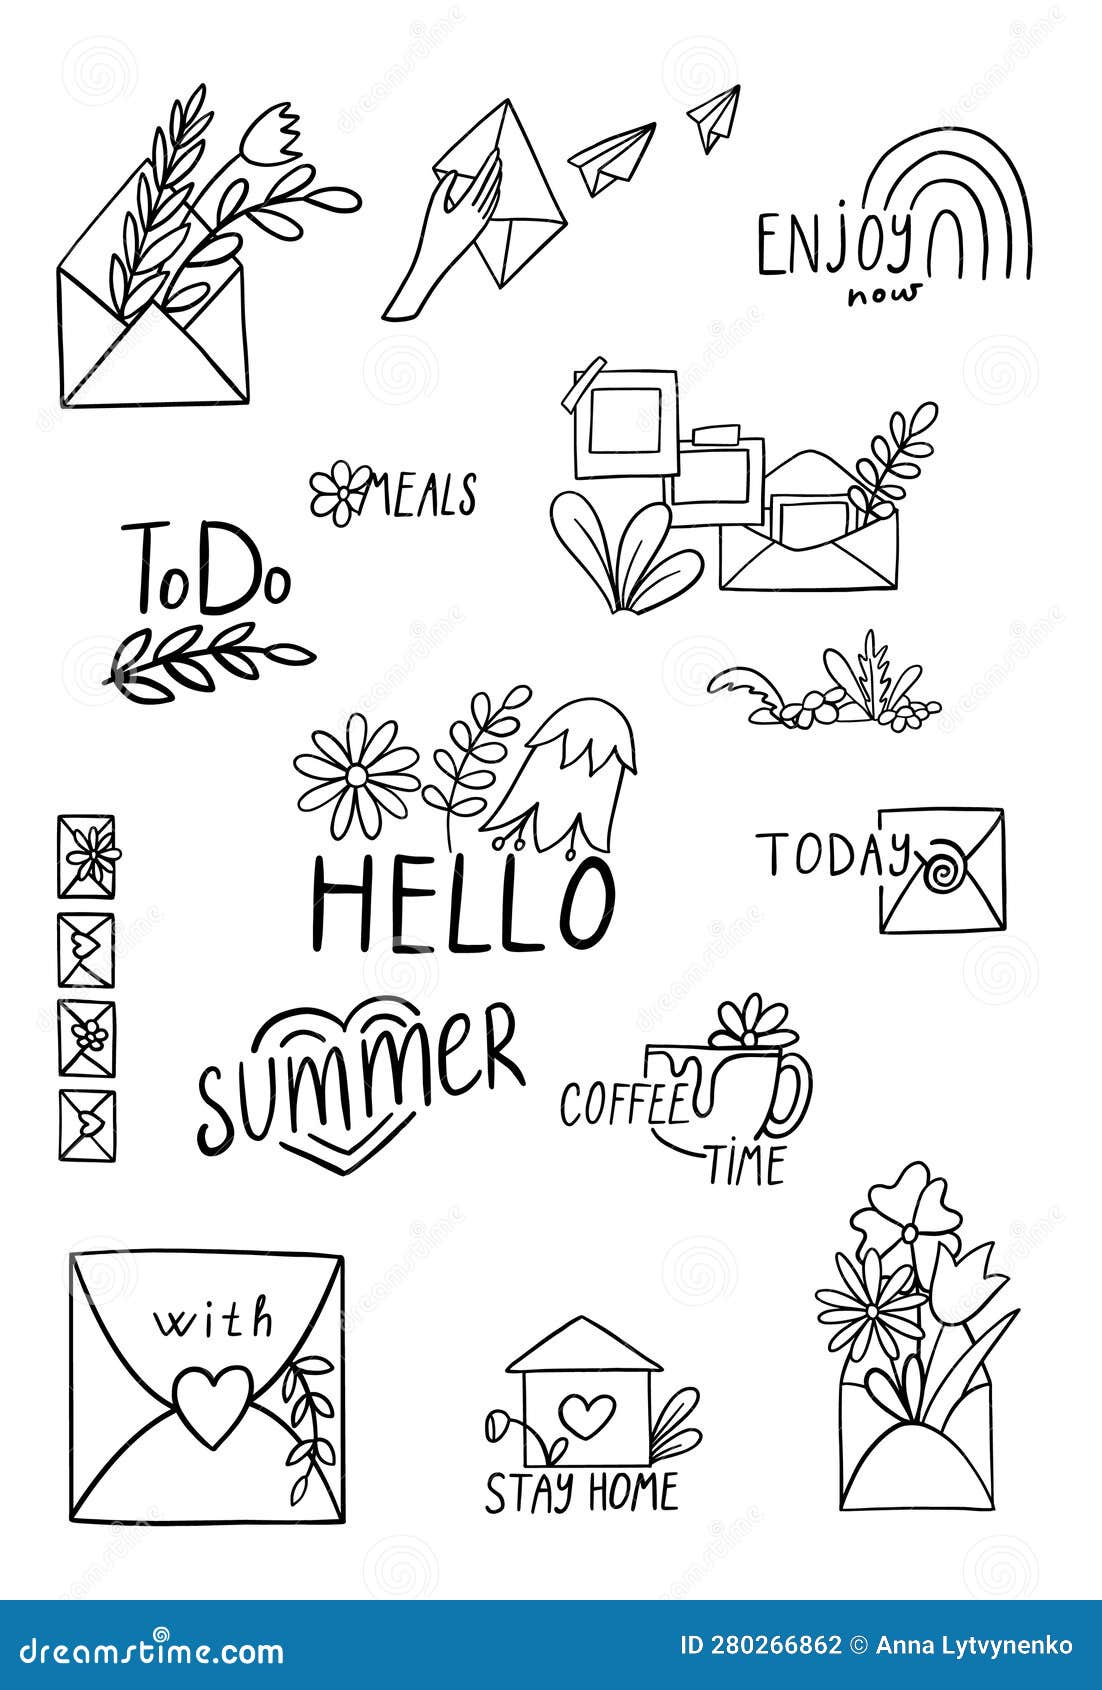 ENJOY
now
MEALS
ToDo
HELLO
TODAY
SUMMER
COFFEE
TIME
with
STAY HOME
dreamstime.com
ID 280266862 © Anna Lytvynenko